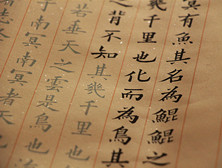 冥有魚其名為鯤鯤之
千里也化而為鳥其
背不知其幾千里也
若垂天之雲是鳥
冥南冥者天